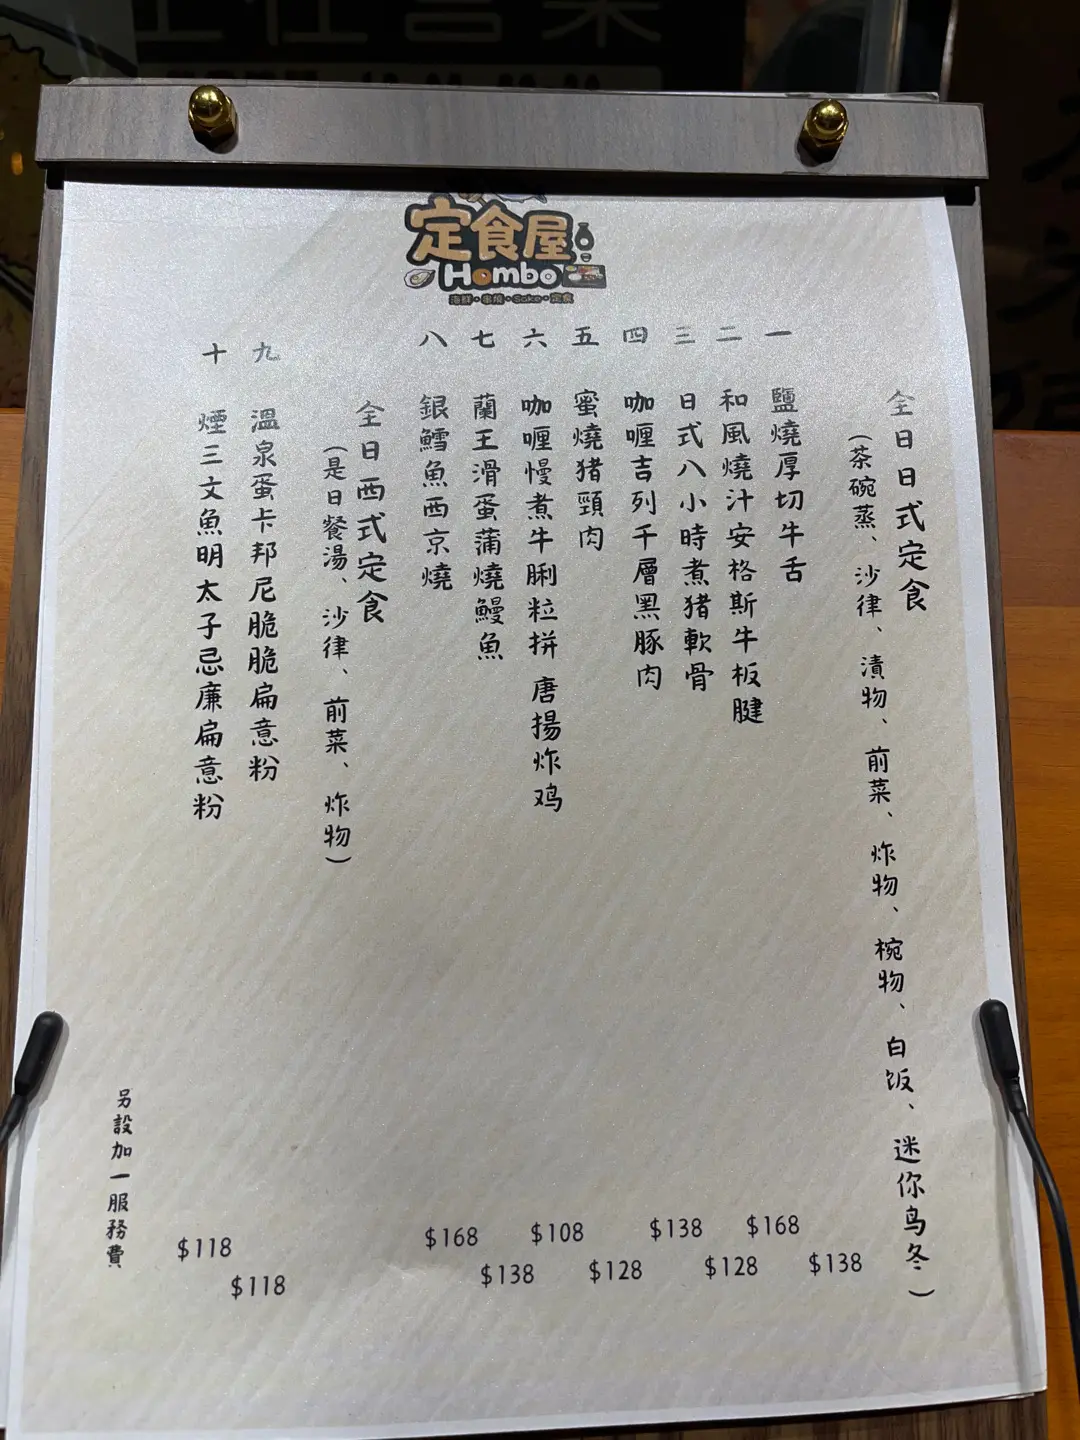 定食屋
Hombo
海鮮・串燒・Sake・定食
全日日式定食
(茶碗蒸、沙律、漬物、前菜、炸物、椀物、白饭、迷你鸟冬)
一 鹽燒厚切牛舌 $138
二 和風燒汁安格斯牛板腱 $168
三 日式八小時煮猪軟骨 $128
四 咖喱吉列千層黑豚肉 $138
五 蜜燒猪頸肉 $128
六 咖喱慢煮牛脷粒拼 唐揚炸鸡 $108
七 蘭王滑蛋蒲燒鰻魚 $138
八 銀鱈魚西京燒 $168
全日西式定食
(是日餐湯、沙律、前菜、炸物)
九 溫泉蛋卡邦尼脆脆扁意粉 $118
十 煙三文魚明太子忌廉扁意粉 $118
另設加一服務費